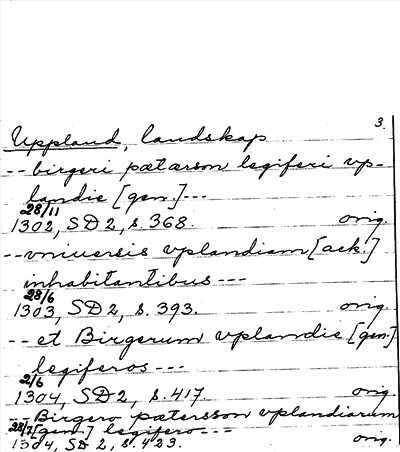 3.
Uppland, landskap
-- birgeri pætærson legiferi vp-
landie [gen.] ---
28/11
1302, SD 2, s. 368. orig.
-- vniuersis vplandiam [ack.]
inhabitantibus ---
28/6
1303, SD 2, s. 393. orig.
-- et Birgerum vplandie [gen.]
legiferos ---
2/6
1304, SD 2, s. 417. orig.
-- Birgero pætersson vplandiarum
[gen.] legifero ---
28/7
1304, SD 2, s. 423. orig.